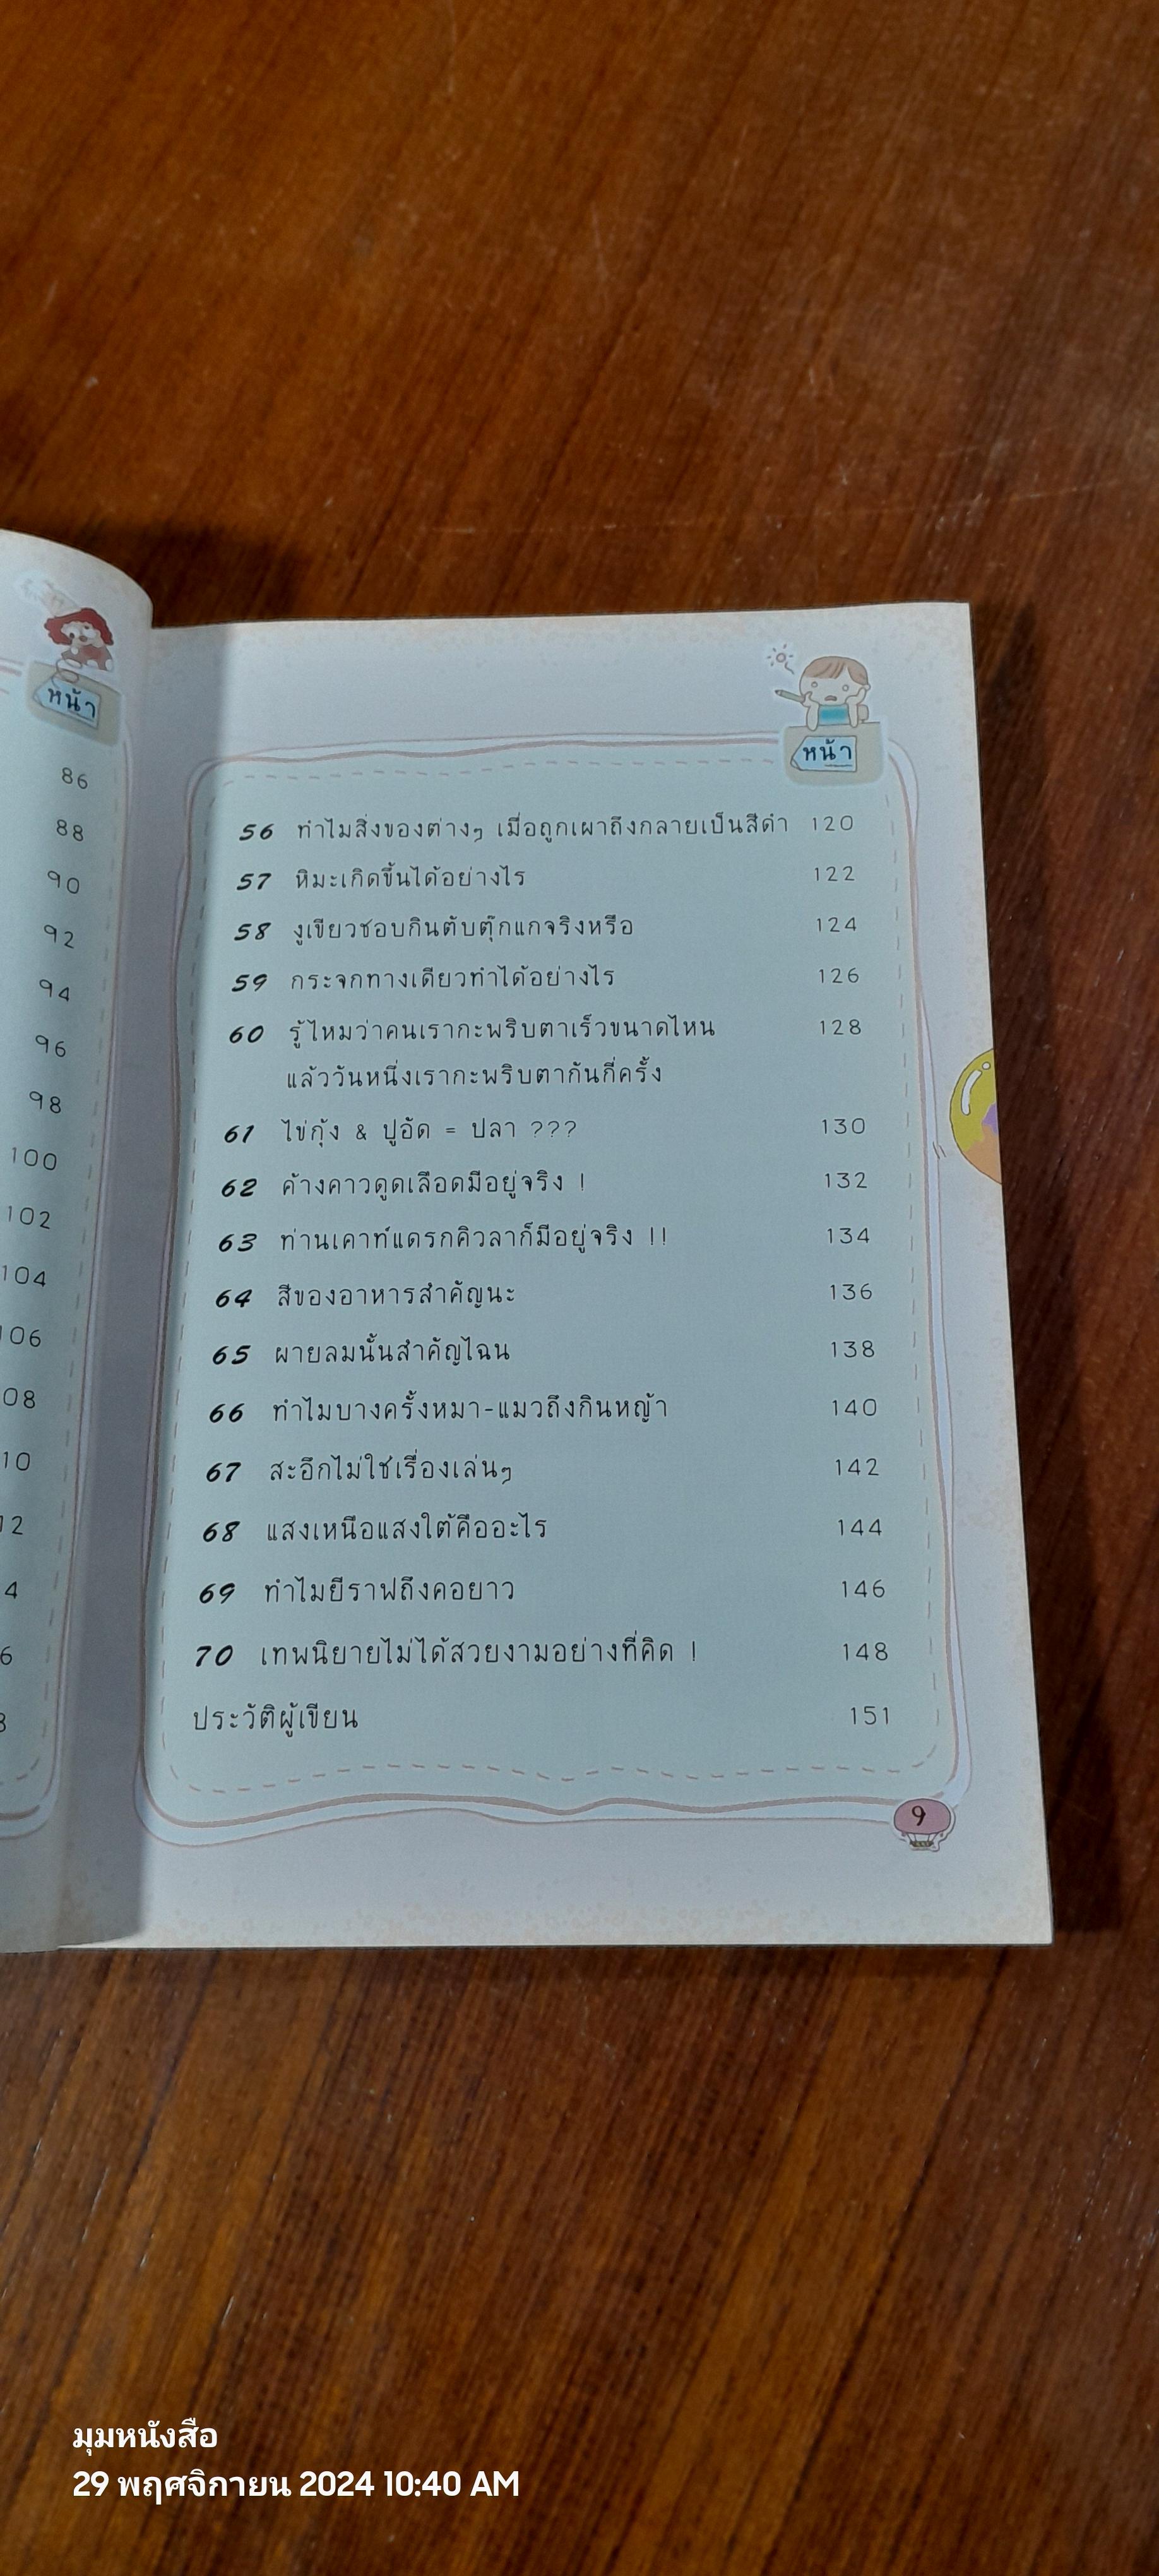 หน้า
86
88
90
92
94
96
98
100
102
104
106
08
10
12
4
6
หน้า
56 ทำไมสิ่งของต่างๆ เมื่อถูกเผาถึงกลายเป็นสีดำ 120
57 หิมะเกิดขึ้นได้อย่างไร 122
58 งูเขียวชอบกินตับตุ๊กแกจริงหรือ 124
59 กระจกทางเดียวทำได้อย่างไร 126
60 รู้ไหมว่าคนเรากะพริบตาเร็วขนาดไหน 128
แล้ววันหนึ่งเรากะพริบตากันกี่ครั้ง
61 ไข่กุ้ง & ปูอัด = ปลา ??? 130
62 ค้างคาวดูดเลือดมีอยู่จริง ! 132
63 ท่านเคาท์แดรกคิวลาก็มีอยู่จริง !! 134
64 สีของอาหารสำคัญนะ 136
65 ผายลมนั้นสำคัญไฉน 138
66 ทำไมบางครั้งหมา-แมวถึงกินหญ้า 140
67 สะอึกไม่ใช่เรื่องเล่นๆ 142
68 แสงเหนือแสงใต้คืออะไร 144
69 ทำไมยีราฟถึงคอยาว 146
70 เทพนิยายไม่ได้สวยงามอย่างที่คิด ! 148
ประวัติผู้เขียน 151
9
มุมหนังสือ
29 พฤศจิกายน 2024 10:40 AM